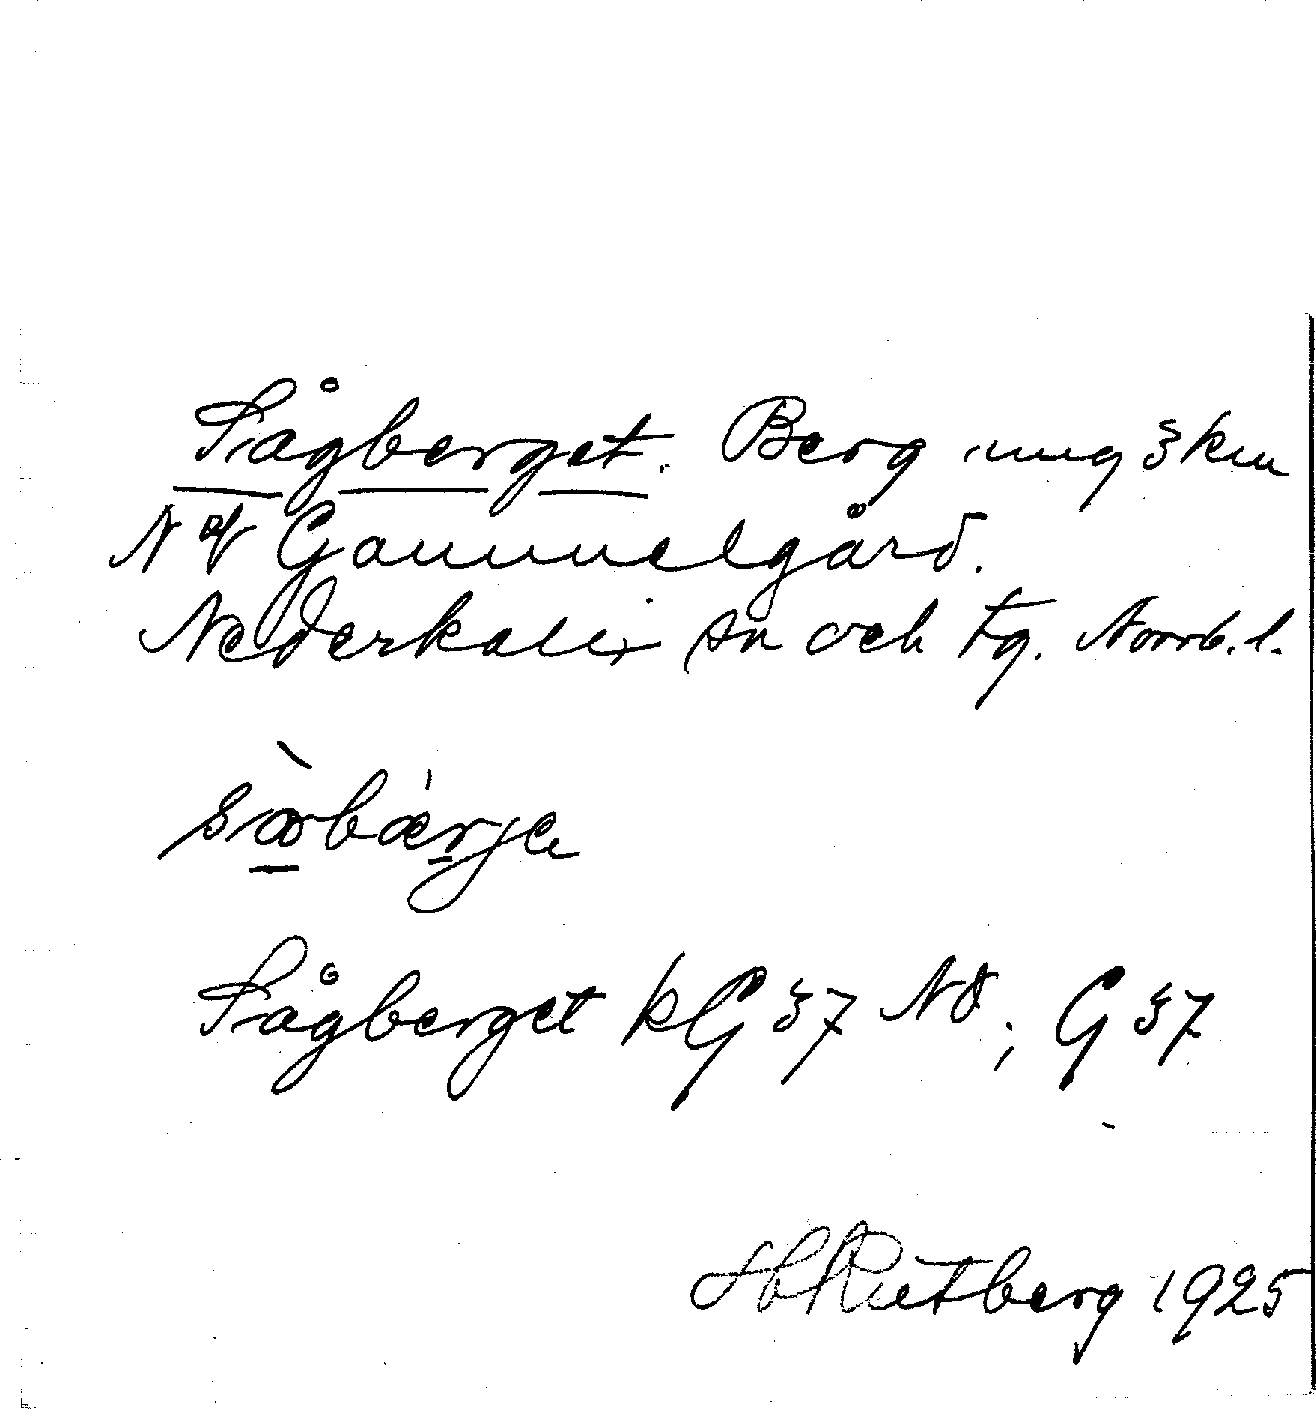 Sågberget. Berg ung 3 km
N of Gammelgård.
Nederkalix sn och tg. Norrb. l.
Sågberget kG 37 NO; G 37
H Rutberg 1925